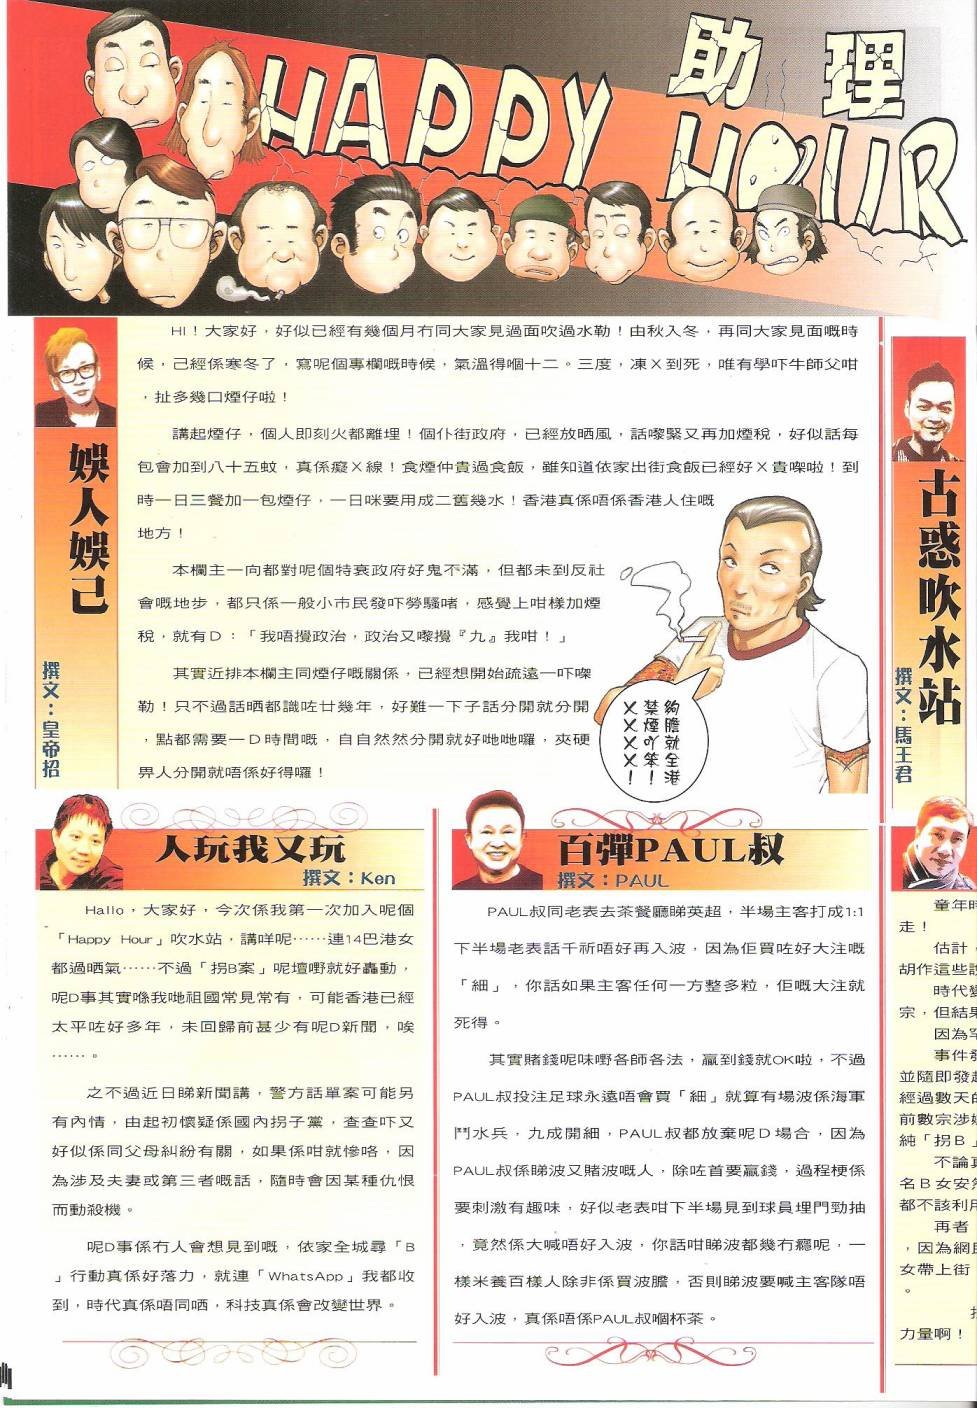 HAPPY
助理
HOUR
娛人娛己
撰文：皇帝招
HI！大家好，好似已經有幾個月冇同大家見過面吹過水勒！由秋入冬，再同大家見面嘅時
候，己經係寒冬了，寫呢個專欄嘅時候，氣溫得嗰十二。三度，凍X到死，唯有學吓牛師父咁
，扯多幾口煙仔啦！
講起煙仔，個人即刻火都離埋！個仆街政府，已經放晒風，話嚟緊又再加煙稅，好似話每
包會加到八十五蚊，真係癡X線！食煙仲貴過食飯，雖知道依家出街食飯已經好X貴㗎啦！到
時一日三餐加一包煙仔，一日咪要用成二舊幾水！香港真係唔係香港人住嘅
地方！
本欄主一向都對呢個特衰政府好鬼不滿，但都未到反社
會嘅地步，都只係一般小市民發吓勞騷啫，感覺上咁樣加煙
稅，就有D：「我唔攪政治，政治又嚟攪『九』我咁！」
其實近排本欄主同煙仔嘅關係，已經想開始疏遠一吓㗎
勒！只不過話晒都識咗廿幾年，好難一下子話分開就分開
，點都需要一D時間嘅，自自然然分開就好哋哋囉，夾硬
畀人分開就唔係好得囉！
夠膽就全港
禁煙吖笨！
XXXXX！
古惑吹水站
撰文：馬王君
人玩我又玩
撰文：Ken
Hallo，大家好，今次係我第一次加入呢個
「Happy Hour」吹水站，講咩呢……連14巴港女
都過晒氣……不過「拐B案」呢壇嘢就好轟動，
呢D事其實喺我哋祖國常見常有，可能香港已經
太平咗好多年，未回歸前甚少有呢D新聞，唉
……。
之不過近日睇新聞講，警方話單案可能另
有內情，由起初懷疑係國內拐子黨，查查吓又
好似係同父母糾紛有關，如果係咁就慘咯，因
為涉及夫妻或第三者嘅話，隨時會因某種仇恨
而動殺機。
呢D事係冇人會想見到嘅，依家全城尋「B
」行動真係好落力，就連「WhatsApp」我都收
到，時代真係唔同哂，科技真係會改變世界。
百彈PAUL叔
撰文：PAUL
PAUL叔同老表去茶餐廳睇英超，半場主客打成1:1
下半場老表話千祈唔好再入波，因為佢買咗好大注嘅
「細」，你話如果主客任何一方整多粒，佢嘅大注就
死得。
其實賭錢呢味嘢各師各法，贏到錢就OK啦，不過
PAUL叔投注足球永遠唔會買「細」就算有場波係海軍
鬥水兵，九成開細，PAUL叔都放棄呢D場合，因為
PAUL叔係睇波又賭波嘅人，除咗首要贏錢，過程梗係
要刺激有趣味，好似老表咁下半場見到球員埋門勁抽
，竟然係大喊唔好入波，你話咁睇波都幾冇癮呢，一
樣米養百樣人除非係買波膽，否則睇波要喊主客隊唔
好入波，真係唔係PAUL叔嗰杯茶。
童年時
走！
估計，
胡作這些
時代變
宗，但結果
因為
事件發
並隨即發起
經過數天的
前數宗涉嫌
純「拐B」
不論真
名B女安然
都不該利用
再者
，因為網民
女帶上街
。
力量啊！